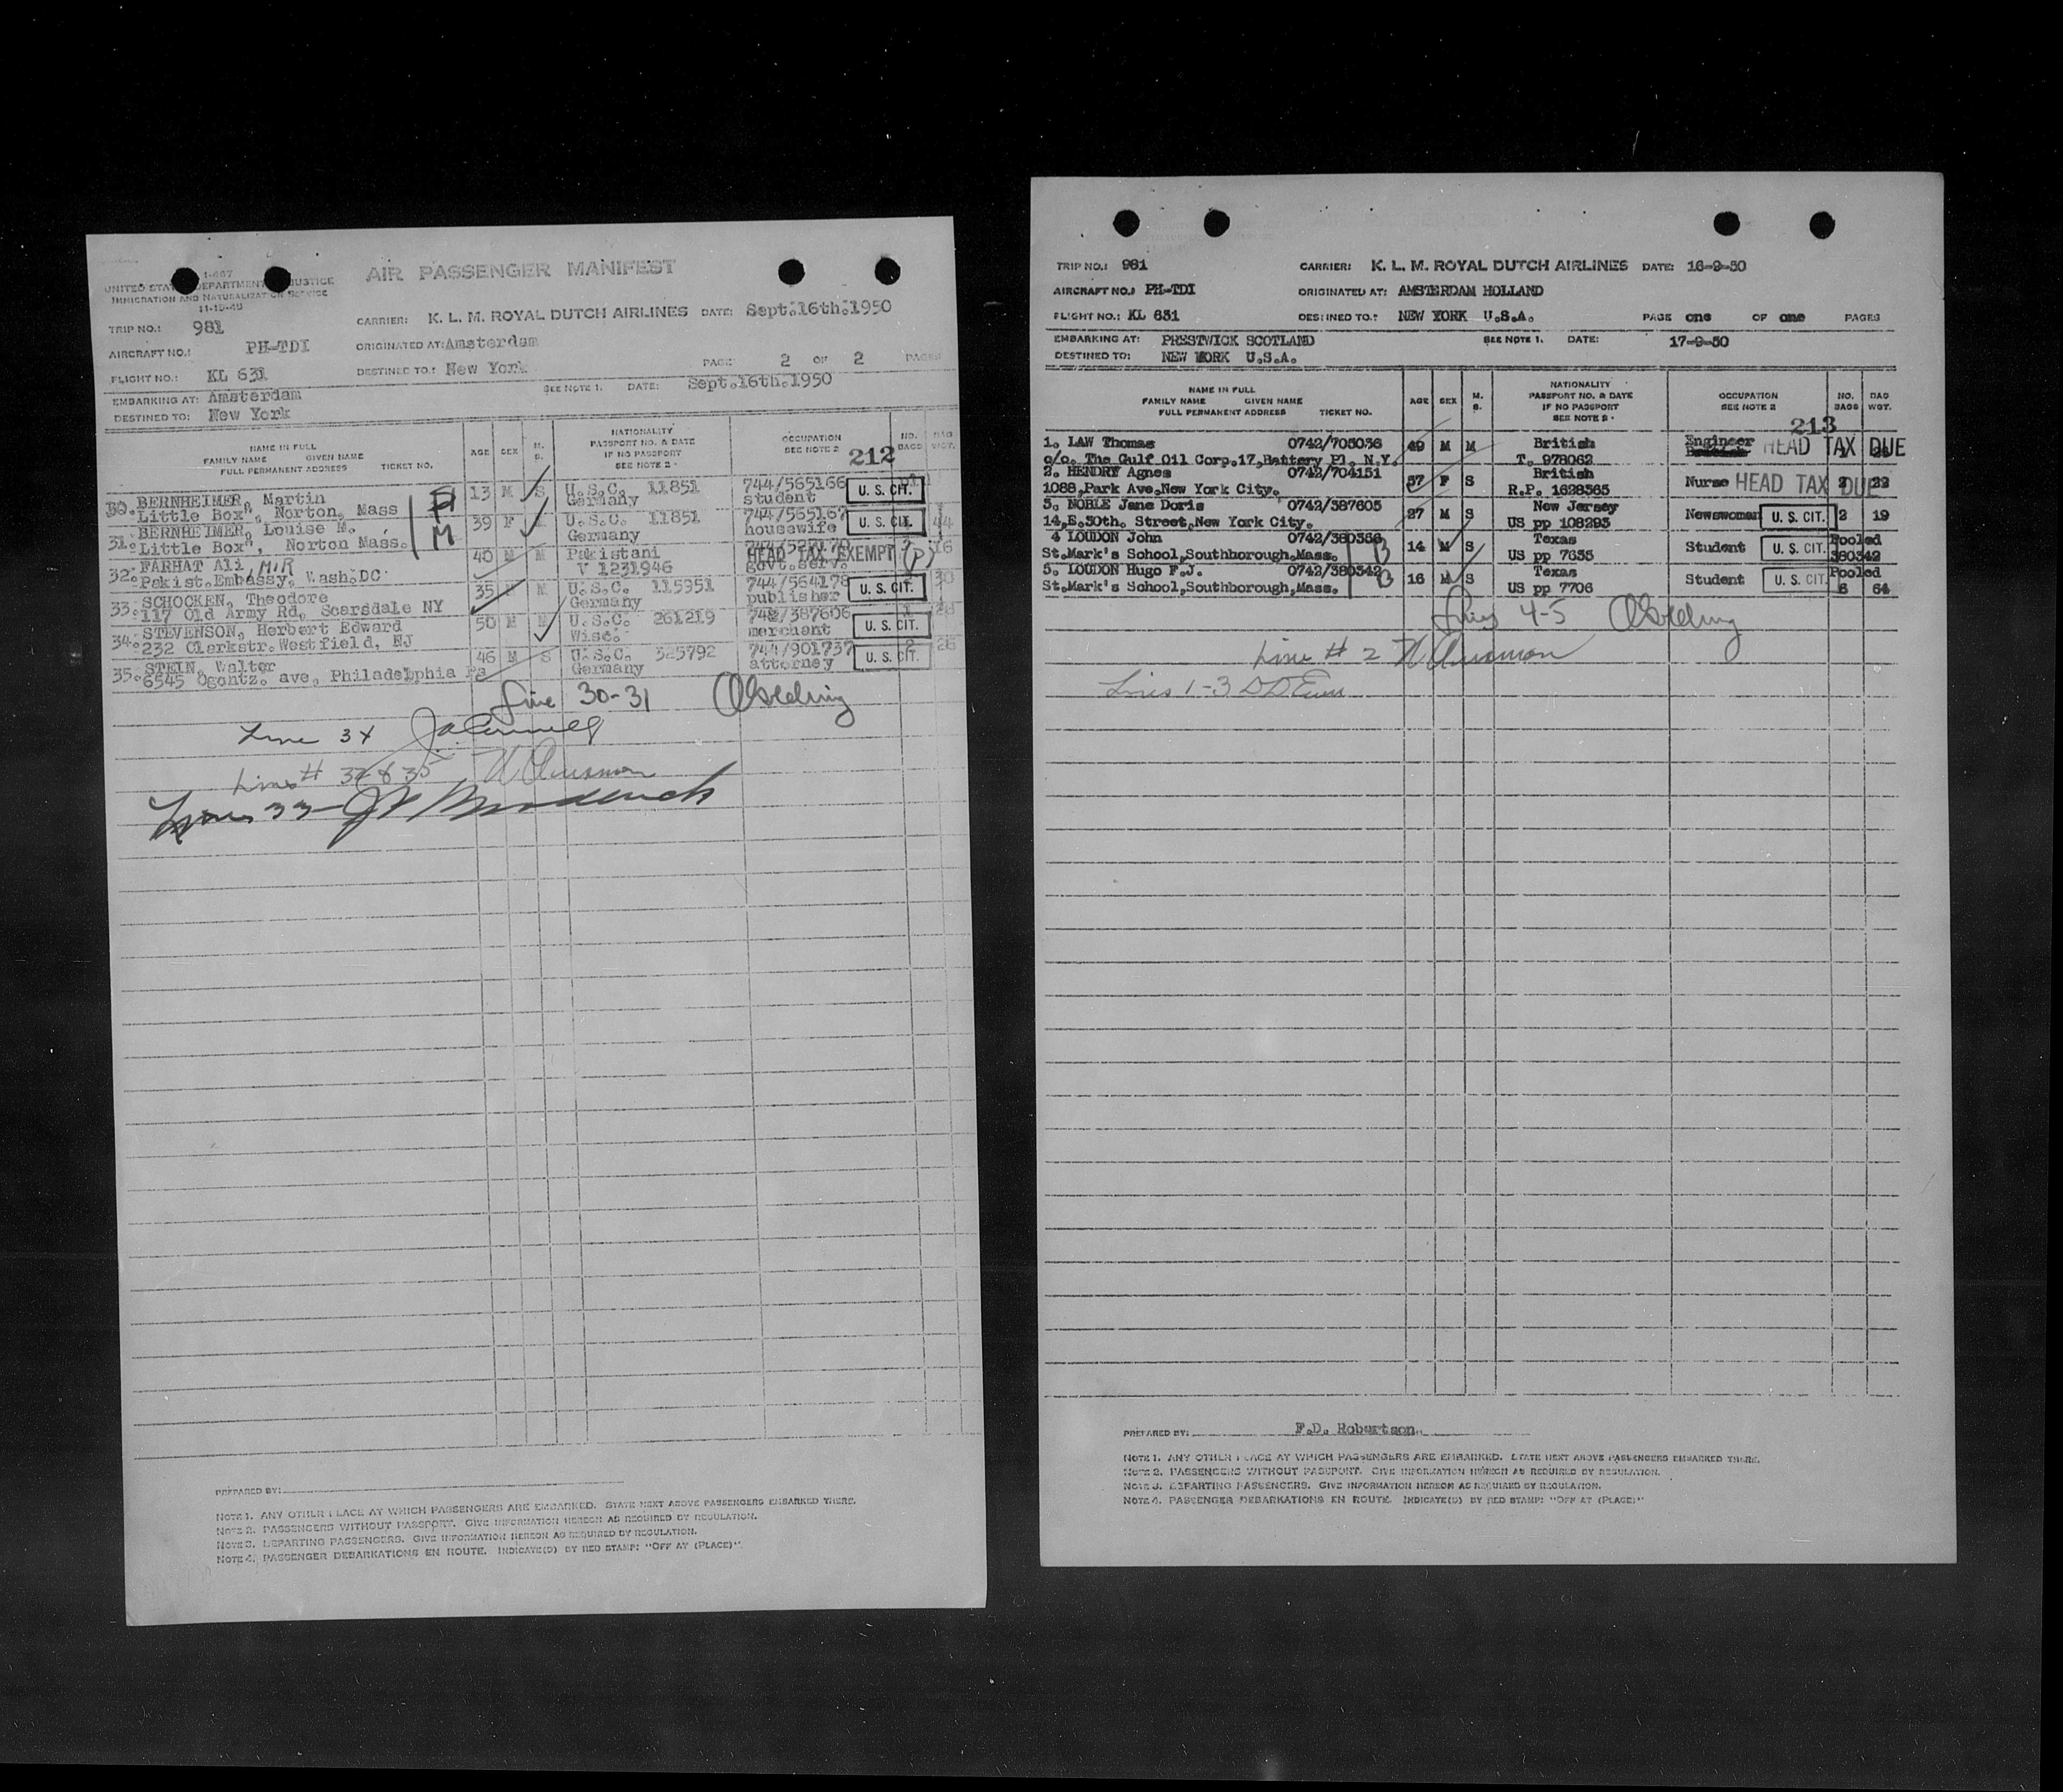 I-467
UNITED STATES DEPARTMENT JUSTICE
IMMIGRATION AND NATURALIZATION SERVICE
11-15-48
AIR PASSENGER MANIFEST
TRIP NO.: 981
CARRIER: K. L. M. ROYAL DUTCH AIRLINES DATE: Sept.16th.1950
AIRCRAFT NO.: PH-TDI
ORIGINATED AT: Amsterdam
FLIGHT NO.: KL 631
DESTINED TO.: New York
PAGE: 2 OF 2 PAGES
EMBARKING AT: Amsterdam
SEE NOTE 1. DATE: Sept.16th.1950
DESTINED TO: New York
NAME IN FULL
FAMILY NAME GIVEN NAME
FULL PERMANENT ADDRESS TICKET NO.
AGE SEX M. S.
NATIONALITY
PASSPORT NO. & DATE
IF NO PASSPORT
SEE NOTE 2
OCCUPATION
SEE NOTE 2
212
NO. BAGS
BAG WGT.
30. BERNHEIMER, Martin 13 M S U.S.C. 11851 744/565166
Little Box", Norton, Mass Germany student U. S. CIT.
31. BERNHEIMER, Louise M. M 39 F U.S.C. 11851 744/565167
Little Box", Norton Mass. Germany housewife U. S. CIT. 44
32. FARHAT Ali MIR 40 M M Pakistani HEAD TAX EXEMPT 16
Pakist.Embassy, Wash.DC V 1231946 govt.serv.
33. SCHOCKEN, Theodore 35 M M U.S.C. 115951 744/564178 30
117 Old Army Rd, Scarsdale NY Germany publisher U. S. CIT.
34. STEVENSON, Herbert Edward 50 M M U.S.C. 261219 742/387606
232 Clarkstr.Westfield, NJ Wisc. merchant U. S. CIT.
35. STEIN, Walter 46 M S U.S.C. 325792 744/901737 26
6545 Ogontz. ave, Philadelphia Pa Germany attorney U. S. CIT.
Line 30-31
Line 34
Line # 32 & 35
Lines 33
PREPARED BY:
NOTE 1. ANY OTHER PLACE AT WHICH PASSENGERS ARE EMBARKED. STATE NEXT ABOVE PASSENGERS EMBARKED THERE.
NOTE 2. PASSENGERS WITHOUT PASSPORT. GIVE INFORMATION HEREON AS REQUIRED BY REGULATION.
NOTE 3. DEPARTING PASSENGERS. GIVE INFORMATION HEREON AS REQUIRED BY REGULATION.
NOTE 4. PASSENGER DEBARKATIONS EN ROUTE. INDICATE(D) BY RED STAMP: "OFF AT (PLACE)".
TRIP NO.: 981 CARRIER: K. L. M. ROYAL DUTCH AIRLINES DATE: 16-9-50
AIRCRAFT NO.: PH-TDI ORIGINATED AT: AMSTERDAM HOLLAND
FLIGHT NO.: KL 631 DESTINED TO.: NEW YORK U.S.A. PAGE one OF one PAGES
EMBARKING AT: PRESTWICK SCOTLAND SEE NOTE 1. DATE: 17-9-50
DESTINED TO: NEW YORK U.S.A.
NAME IN FULL
FAMILY NAME GIVEN NAME
FULL PERMANENT ADDRESS TICKET NO.
AGE SEX M. S.
NATIONALITY
PASSPORT NO. & DATE
IF NO PASSPORT
SEE NOTE 2
OCCUPATION
SEE NOTE 2
NO. BAGS
BAG WGT.
213
1. LAW Thomas 0742/705036 49 M M British Engineer HEAD TAX DUE
c/o. The Gulf Oil Corp.17,Battery Pl. N.Y. T. 978062
2. HENDRY Agnes 0742/704151 37 F S British Nurse HEAD TAX DUE
1088,Park Ave,New York City. R.P. 1628365
3. NOBLE Jane Doris 0742/387605 27 M S New Jersey Newswoman U. S. CIT. 2 19
14,E.30th. Street,New York City. US pp 108293
4 LOUDON John 0742/380366 B 14 M S Texas Student U. S. CIT. Pooled
St.Mark's School,Southborough,Mass. US pp 7635 380342
5. LOUDON Hugo F.J. 0742/380342 B 16 M S Texas Student U. S. CIT. Pooled
St.Mark's School,Southborough,Mass. US pp 7706 6 64
Lines 4-5
Line # 2
Lines 1-3
PREPARED BY: F.D. Robertson.
NOTE 1. ANY OTHER PLACE AT WHICH PASSENGERS ARE EMBARKED. STATE NEXT ABOVE PASSENGERS EMBARKED THERE.
NOTE 2. PASSENGERS WITHOUT PASSPORT. GIVE INFORMATION HEREON AS REQUIRED BY REGULATION.
NOTE 3. DEPARTING PASSENGERS. GIVE INFORMATION HEREON AS REQUIRED BY REGULATION.
NOTE 4. PASSENGER DEBARKATIONS EN ROUTE. INDICATE(D) BY RED STAMP: "OFF AT (PLACE)"